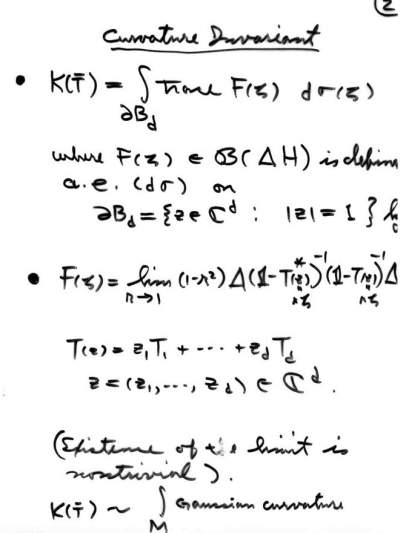 2
Curvature Invariant
• K(T̄) = ∫_{∂B_d} trace F(ζ) dσ(ζ)
where F(ζ) ∈ B(ΔH) is defined
a.e. (dσ) on
∂B_d = {z ∈ ℂ^d : |z| = 1}
• F(ζ) = lim_{r→1} (1-r²) Δ(1-T(z)*)^{-1}(1-T(z))^{-1}Δ
rζ rζ
T(z) = z₁T₁ + ··· + z_d T_d
z = (z₁, ..., z_d) ∈ ℂ^d.
(Existence of the limit is
nontrivial).
K(T̄) ~ ∫_M Gaussian curvature